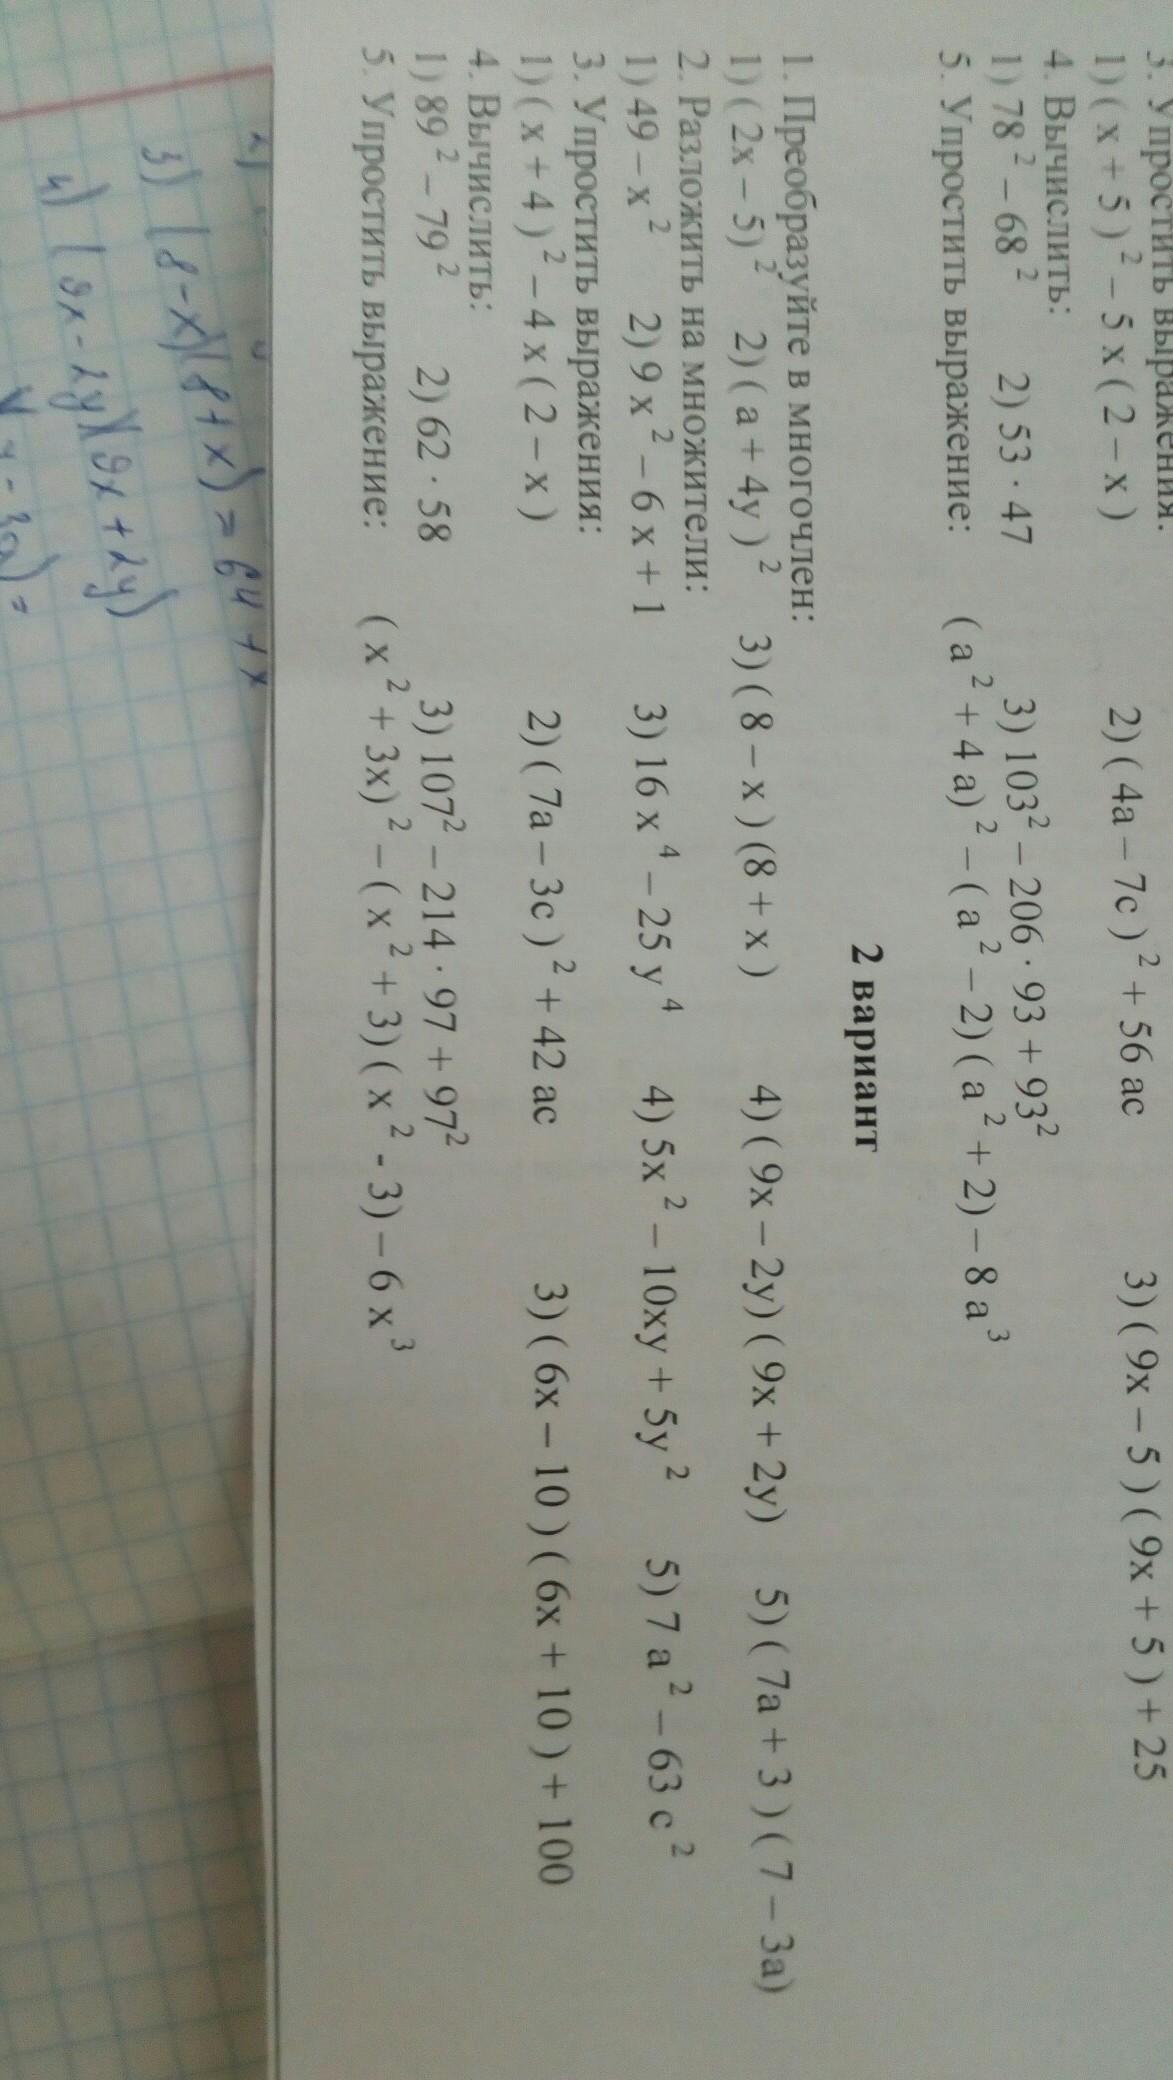 3. Упростить выражения:
1) ( x + 5 )² – 5 x ( 2 – x ) 2) ( 4a – 7c )² + 56 ac 3) ( 9x – 5 ) ( 9x + 5 ) + 25
4. Вычислить:
1) 78² – 68² 2) 53 · 47 3) 103² – 206 · 93 + 93²
5. Упростить выражение: ( a² + 4 a)² – ( a² – 2) ( a² + 2) – 8 a³
2 вариант
1. Преобразуйте в многочлен:
1) ( 2x – 5)² 2) ( a + 4y )² 3) ( 8 – x ) (8 + x ) 4) ( 9x – 2y) ( 9x + 2y) 5) ( 7a + 3 ) ( 7 – 3a)
2. Разложить на множители:
1) 49 – x² 2) 9 x² – 6 x + 1 3) 16 x⁴ – 25 y⁴ 4) 5x² – 10xy + 5y² 5) 7 a² – 63 c²
3. Упростить выражения:
1) ( x + 4 )² – 4 x ( 2 – x ) 2) ( 7a – 3c )² + 42 ac 3) ( 6x – 10 ) ( 6x + 10 ) + 100
4. Вычислить:
1) 89² – 79² 2) 62 · 58 3) 107² – 214 · 97 + 97²
5. Упростить выражение: ( x² + 3x)² – ( x² + 3) ( x² - 3) – 6 x³
3) (8-x)(8+x) = 64 + x
4) (9x-2y)(9x+2y)
- 3a) =